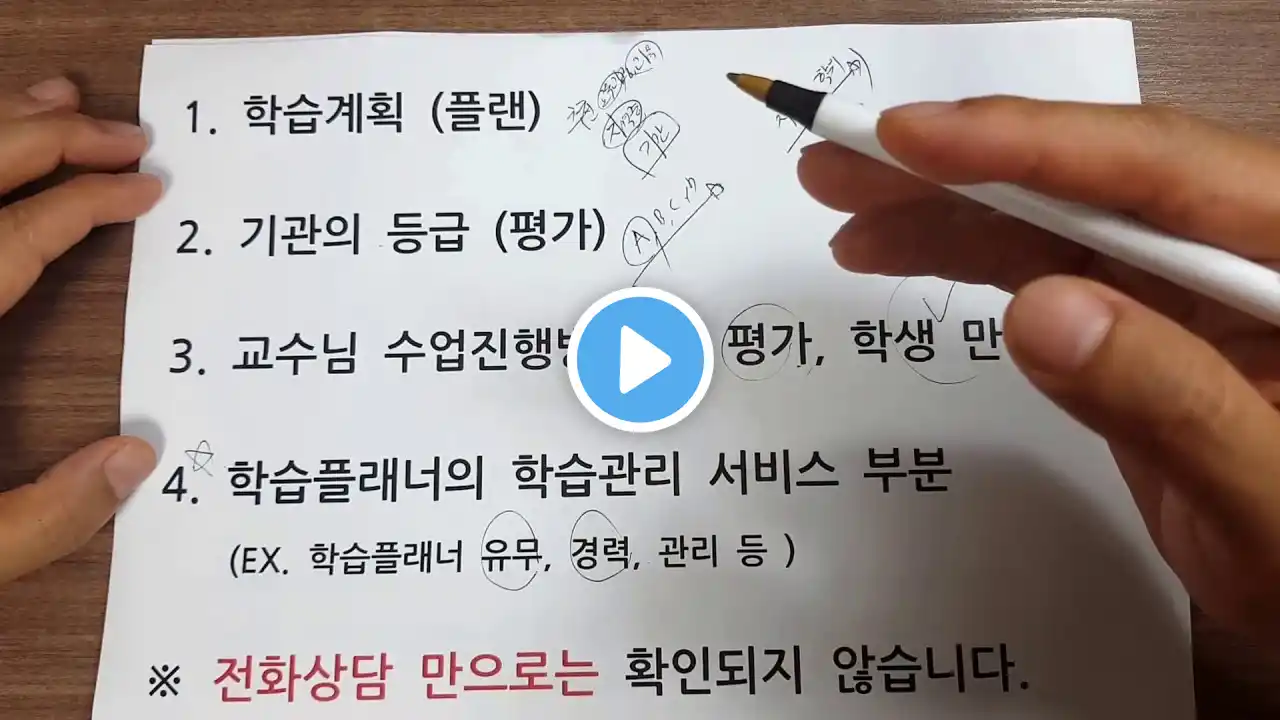 1. 학습계획 (플랜)
기간
2. 기관의 등급 (평가) A B, C
3. 교수님 수업진행 평가, 학생 만
4. 학습플래너의 학습관리 서비스 부분
(EX. 학습플래너 유무, 경력, 관리 등 )
※ 전화상담 만으로는 확인되지 않습니다.